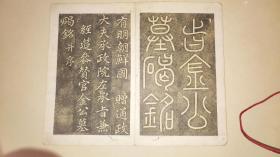 旨金公
墓碣銘
有明朝鮮國 贈通政
大夫承政院左承旨兼
經筵參贊官金公墓
碣銘并序